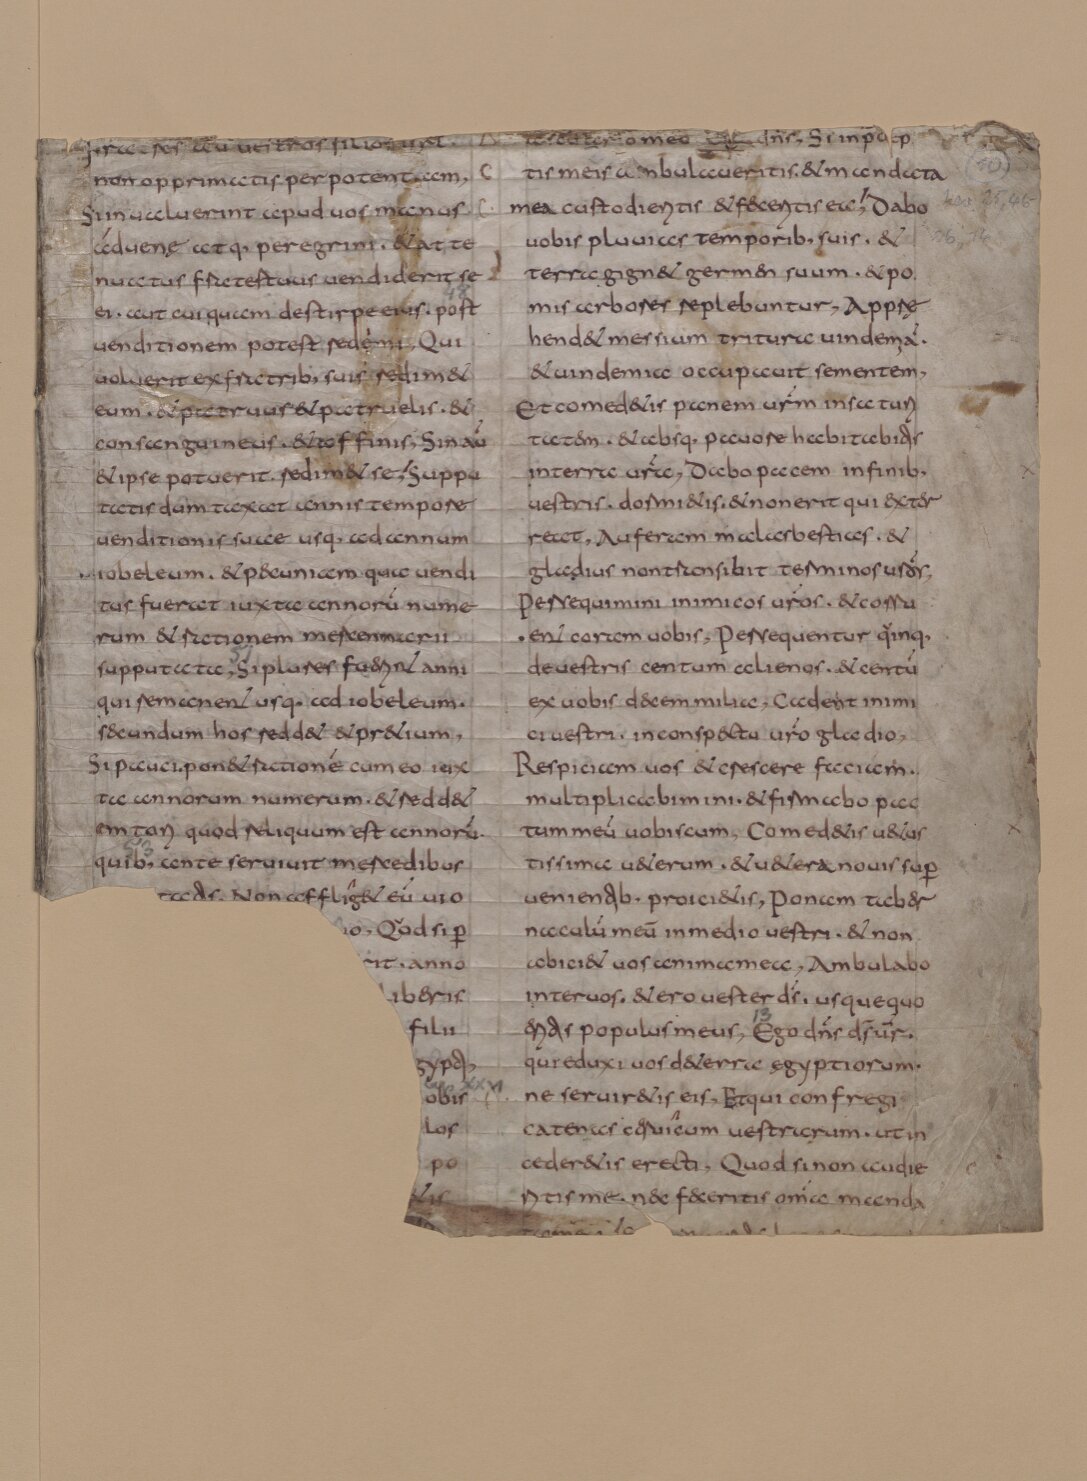 fratres au uestros filios isrl.
non opprimatis per potentiam,
Si inualuerint apud uos manus
aduene atq. peregrini. & atte
nuatus frater tuus uendiderit se
ei. aut cuiquam de stirpe eius. post
48
uenditionem potest redemi, Qui
uoluerit ex fratrib, suis redim&
eum. & patruus & patruelis. &
consanguineus. & affinis, Sin aū
& ipse potuerit. redim& se, Suppu
tatis dum taxat annis tempore
uenditionis suae usq. ad annum
iobeleum. & pecuniam qua uendi
tus fuerat iuxta annorū nume
rum & rationem mercennarii
supputata, Si plures fuerint anni
51
qui remanent usq. ad iobeleum.
secundum hos redd& & pr&ium,
Si pauci. pon& rationē cum eo iux
ta annorum numerum. & redd&
emtori quod reliquum est annorū.
53
quib, ante seruiuit mercedibus
Non afflig& eū uio
Qđ si p̄
rit. anno
liberis
filii
gypti,
obis
XXVI
los
po
&is
dn̄s, Si in p̄cep
(40)
tis meis ambulaueritis. & mandata
Lev. 25, 46
mea custodieritis & feceritis ea, Dabo
26, 14
uobis pluuias temporib. suis. &
terra gign& germen suum. & po
mis arbores replebuntur, Appre
hend& messium tritura uindemiā.
& uindemia occupauit sementem,
Et comed&is panem ur̄m in satu
tatem. & absq. pauore habitabitis
in terra ur̄a, Dabo pacem in finib,
uestris. dormi&is. & non erit qui exter
reat, Auferam malas bestias. &
gladius non transibit terminos ur̄os,
Persequimini inimicos ur̄os. & corru
ent coram uobis, Persequentur quinq,
de uestris centum alienos. & centū
ex uobis decem milia, Cadent inimi
ci uestri. in conspectu ur̄o gladio,
Respiciam uos & crescere faciam.
multiplicabimini. & firmabo pac
tum meū uobiscum, Comed&is u&us
tissima u&erum. & u&era nouis sup̄
uenientib. proici&is, Ponam taber
naculū meū in medio uestri. & non
abici& uos anima mea, Ambulabo
inter uos. & ero uester ds̄. usque quo
eritis populus meus, Ego dn̄s ds̄ ur̄.
13
qui eduxi uos d&erra egyptiorum.
ne seruir&is eis, Et qui confregi
catenas ceruicum uestrarum. ut in
ceder&is erecti, Quod si non audie
ritis me. nec feceritis om̄ia manda